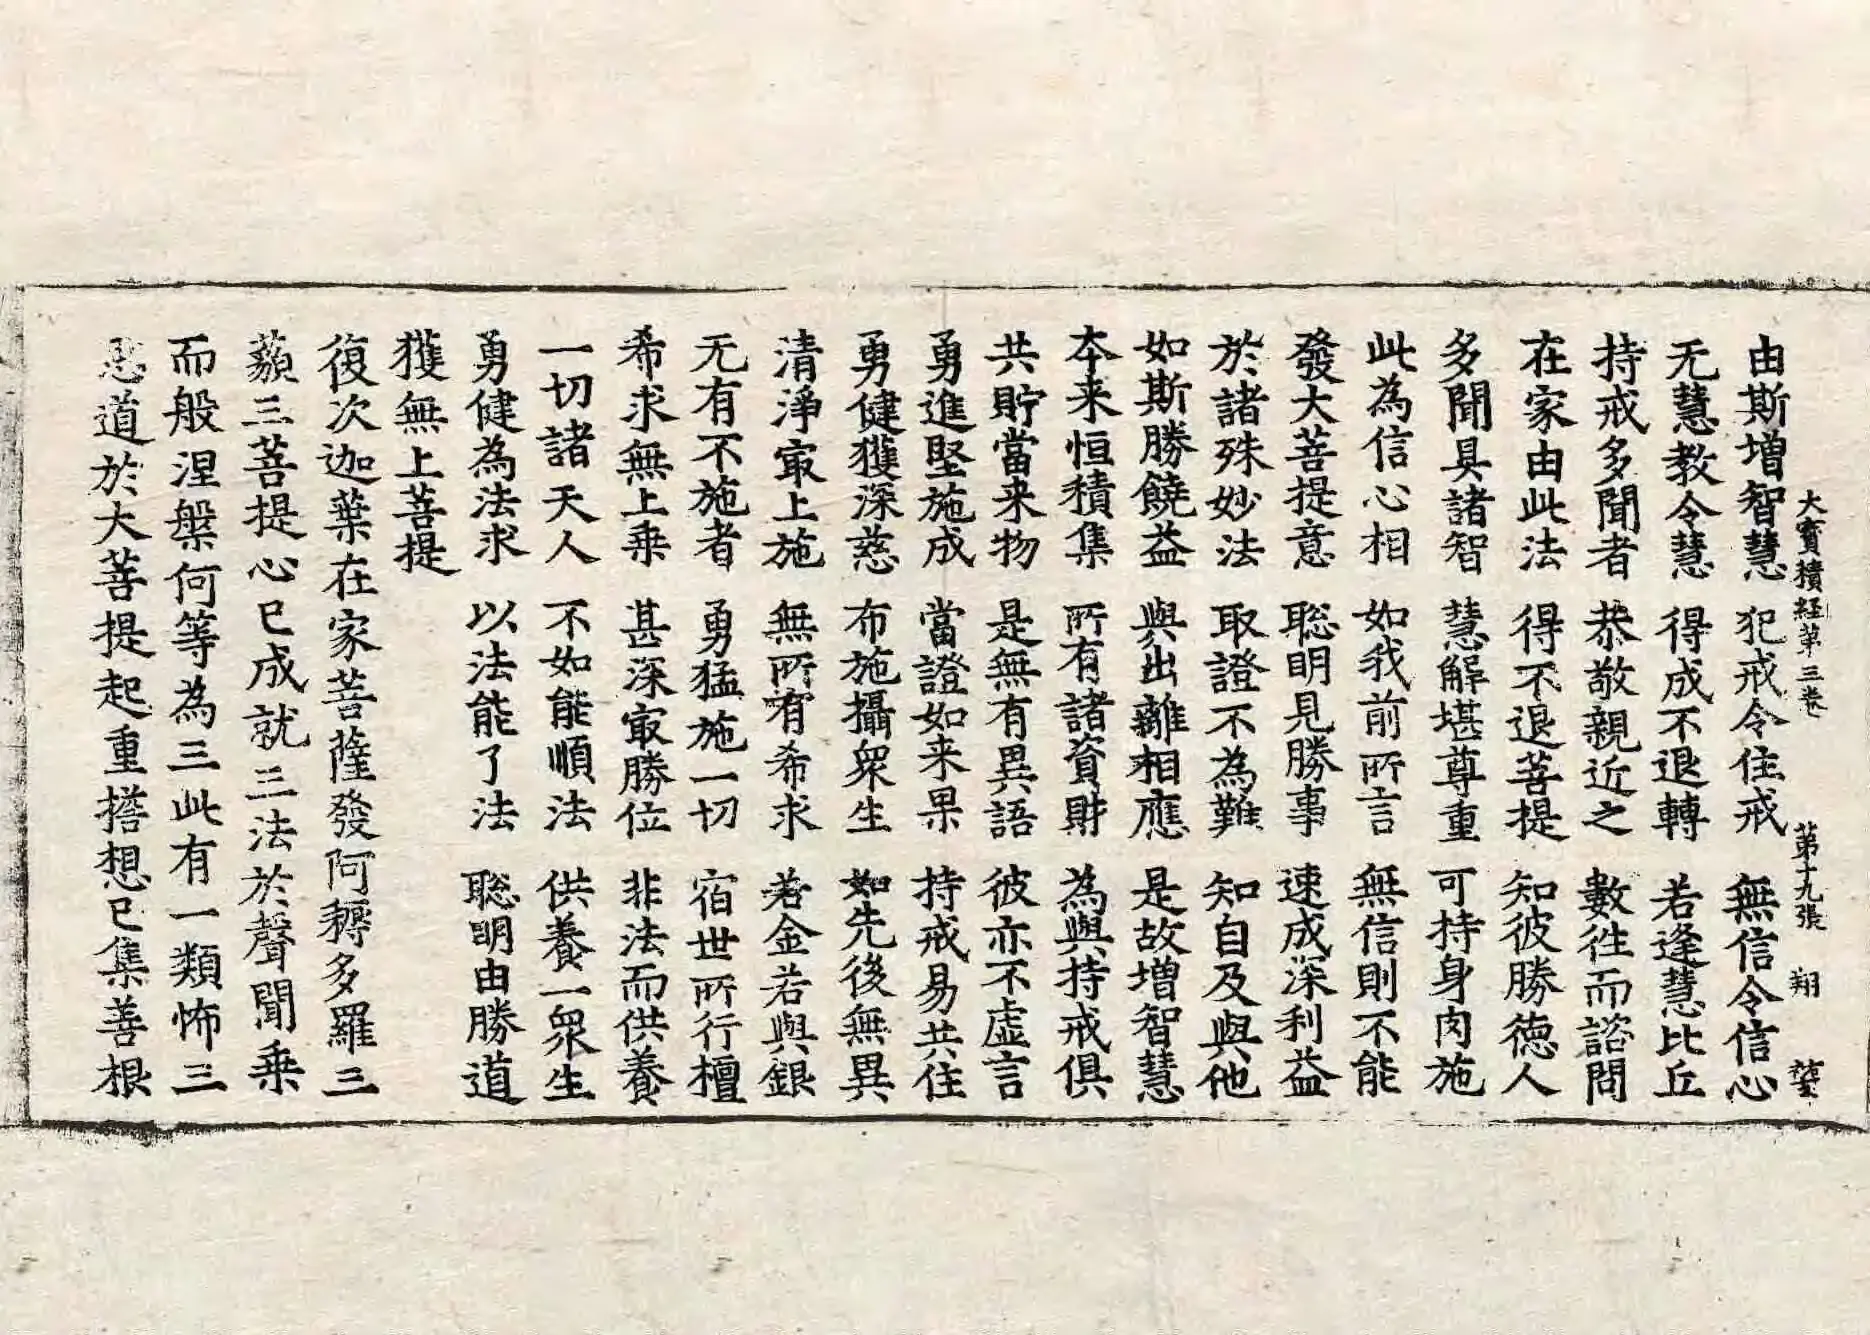 大寳積経苐三卷 第十九張 翔
由斯增智慧 犯戒令住戒 無信令信心
无慧教令慧 得成不退轉 若逢慧比丘
持戒多聞者 恭敬親近之 數往而諮問
在家由此法 得不退菩提 知彼勝德人
多聞具諸智 慧解堪尊重 可持身肉施
此為信心相 如我前所言 無信則不能
發大菩提意 聡明見勝事 速成深利益
於諸殊妙法 取證不為難 知自及與他
如斯勝饒益 與出離相應 是故增智慧
夲来恒積集 所有諸資財 為與持戒俱
共貯當来物 是無有異語 彼亦不虛言
勇進堅施成 當證如来果 持戒易共住
勇健獲深慈 布施攝衆生 如先後無異
清淨㝡上施 無所有希求 若金若與銀
无有不施者 勇猛施一切 宿世所行檀
希求無上乗 甚深㝡勝位 非法而供養
一切諸天人 不如能順法 供養一衆生
勇健為法求 以法能了法 聡明由勝道
獲無上菩提
復次迦葉在家菩薩發阿耨多羅三
藐三菩提心已成就三法於聲聞乗
而般涅槃何等為三此有一類怖三
惡道於大菩提起重擔想已集善根